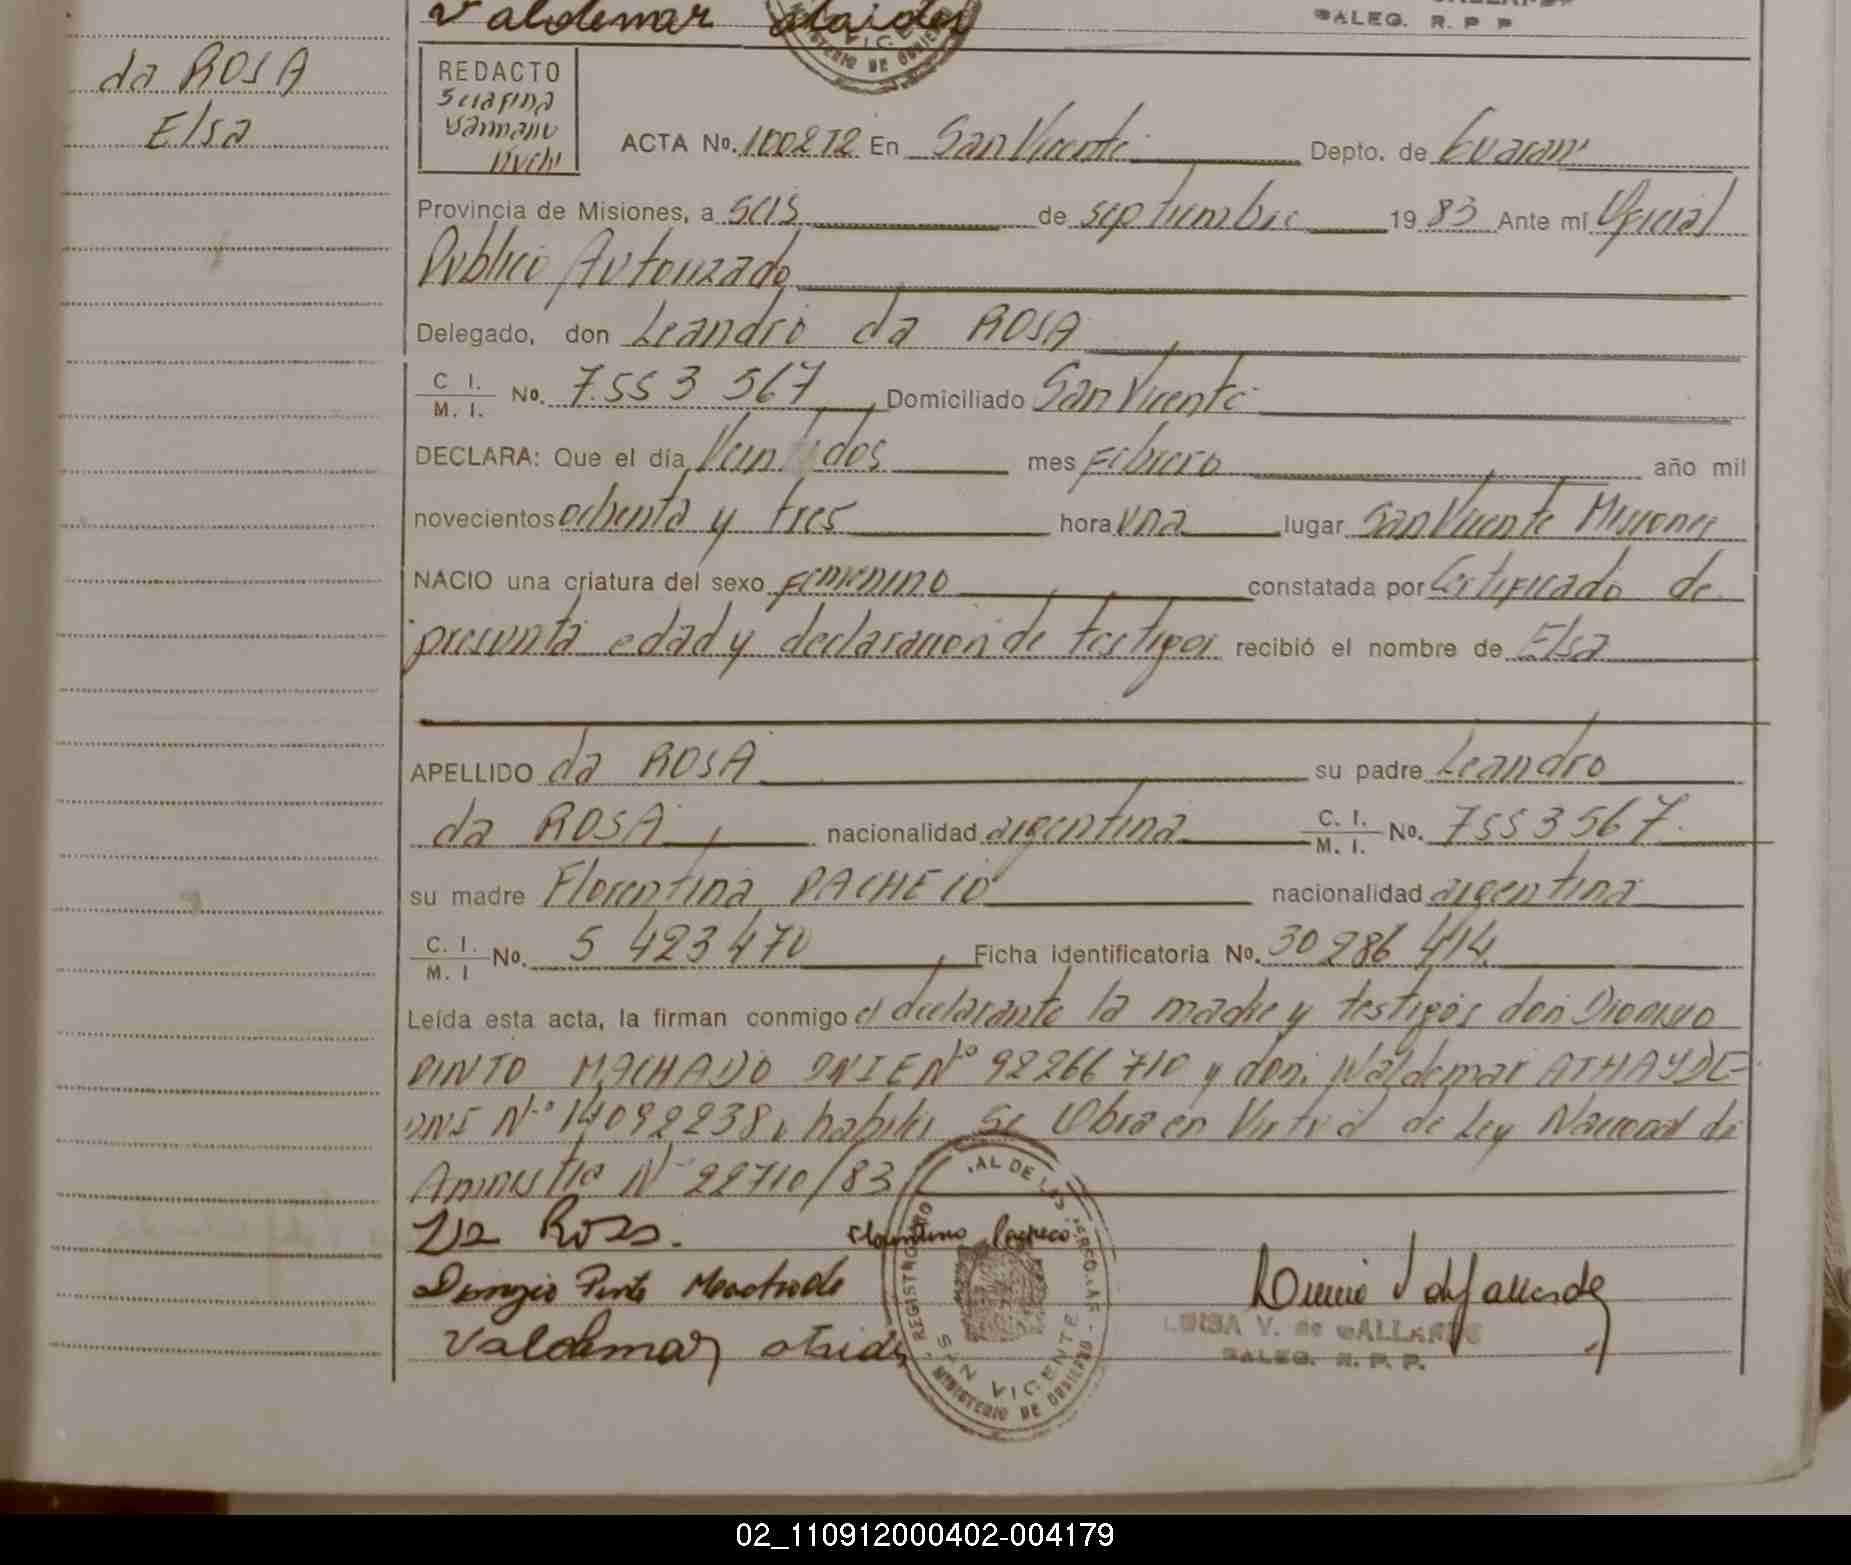 Valdemar ataides
VICE
MINISTERIO DE GOBIERNO
DALEG. R. P. P.
da ROSA
Elsa
REDACTO
Serafina
ACTA No. 100272 En San Vicente Depto. de Guarani
Provincia de Misiones, a seis de septiembre 19 83 Ante mi Oficial
Publico Autorizado
Delegado, don Leandro da ROSA
C. I. / M. I. No. 7.553 567 Domiciliado San Vicente
DECLARA: Que el día Veintidos mes Febrero año mil
novecientos ochenta y tres hora una lugar San Vicente Misiones
NACIO una criatura del sexo femenino constatada por Certificado de
presunta edad y declaracion de testigos recibió el nombre de Elsa
APELLIDO da ROSA su padre Leandro
da ROSA nacionalidad argentina C. I. / M. I. No. 7553567.
su madre Florentina PACHECO nacionalidad argentina
C. I. / M. I No. 5 423 470 Ficha identificatoria No. 30 286 414
Leída esta acta, la firman conmigo el declarante la madre y testigos don Dionisio
PINTO MACHADO DNIE Nº 92266 710 y don Waldemar ATHAYDE
DNI Nº 14092238, habiles Se Obra en Virtud de Ley Nacional de
Amnistia Nº 22710/83
Da Rosa. Florentina Pacheco
Pinto
Valdemar ataides
REGISTRO AL DE LAS
SAN VICENTE
MINISTERIO DE GOBIERNO
LUISA V. de GALLARDO
DALEG. R. P. P.
02_110912000402-004179